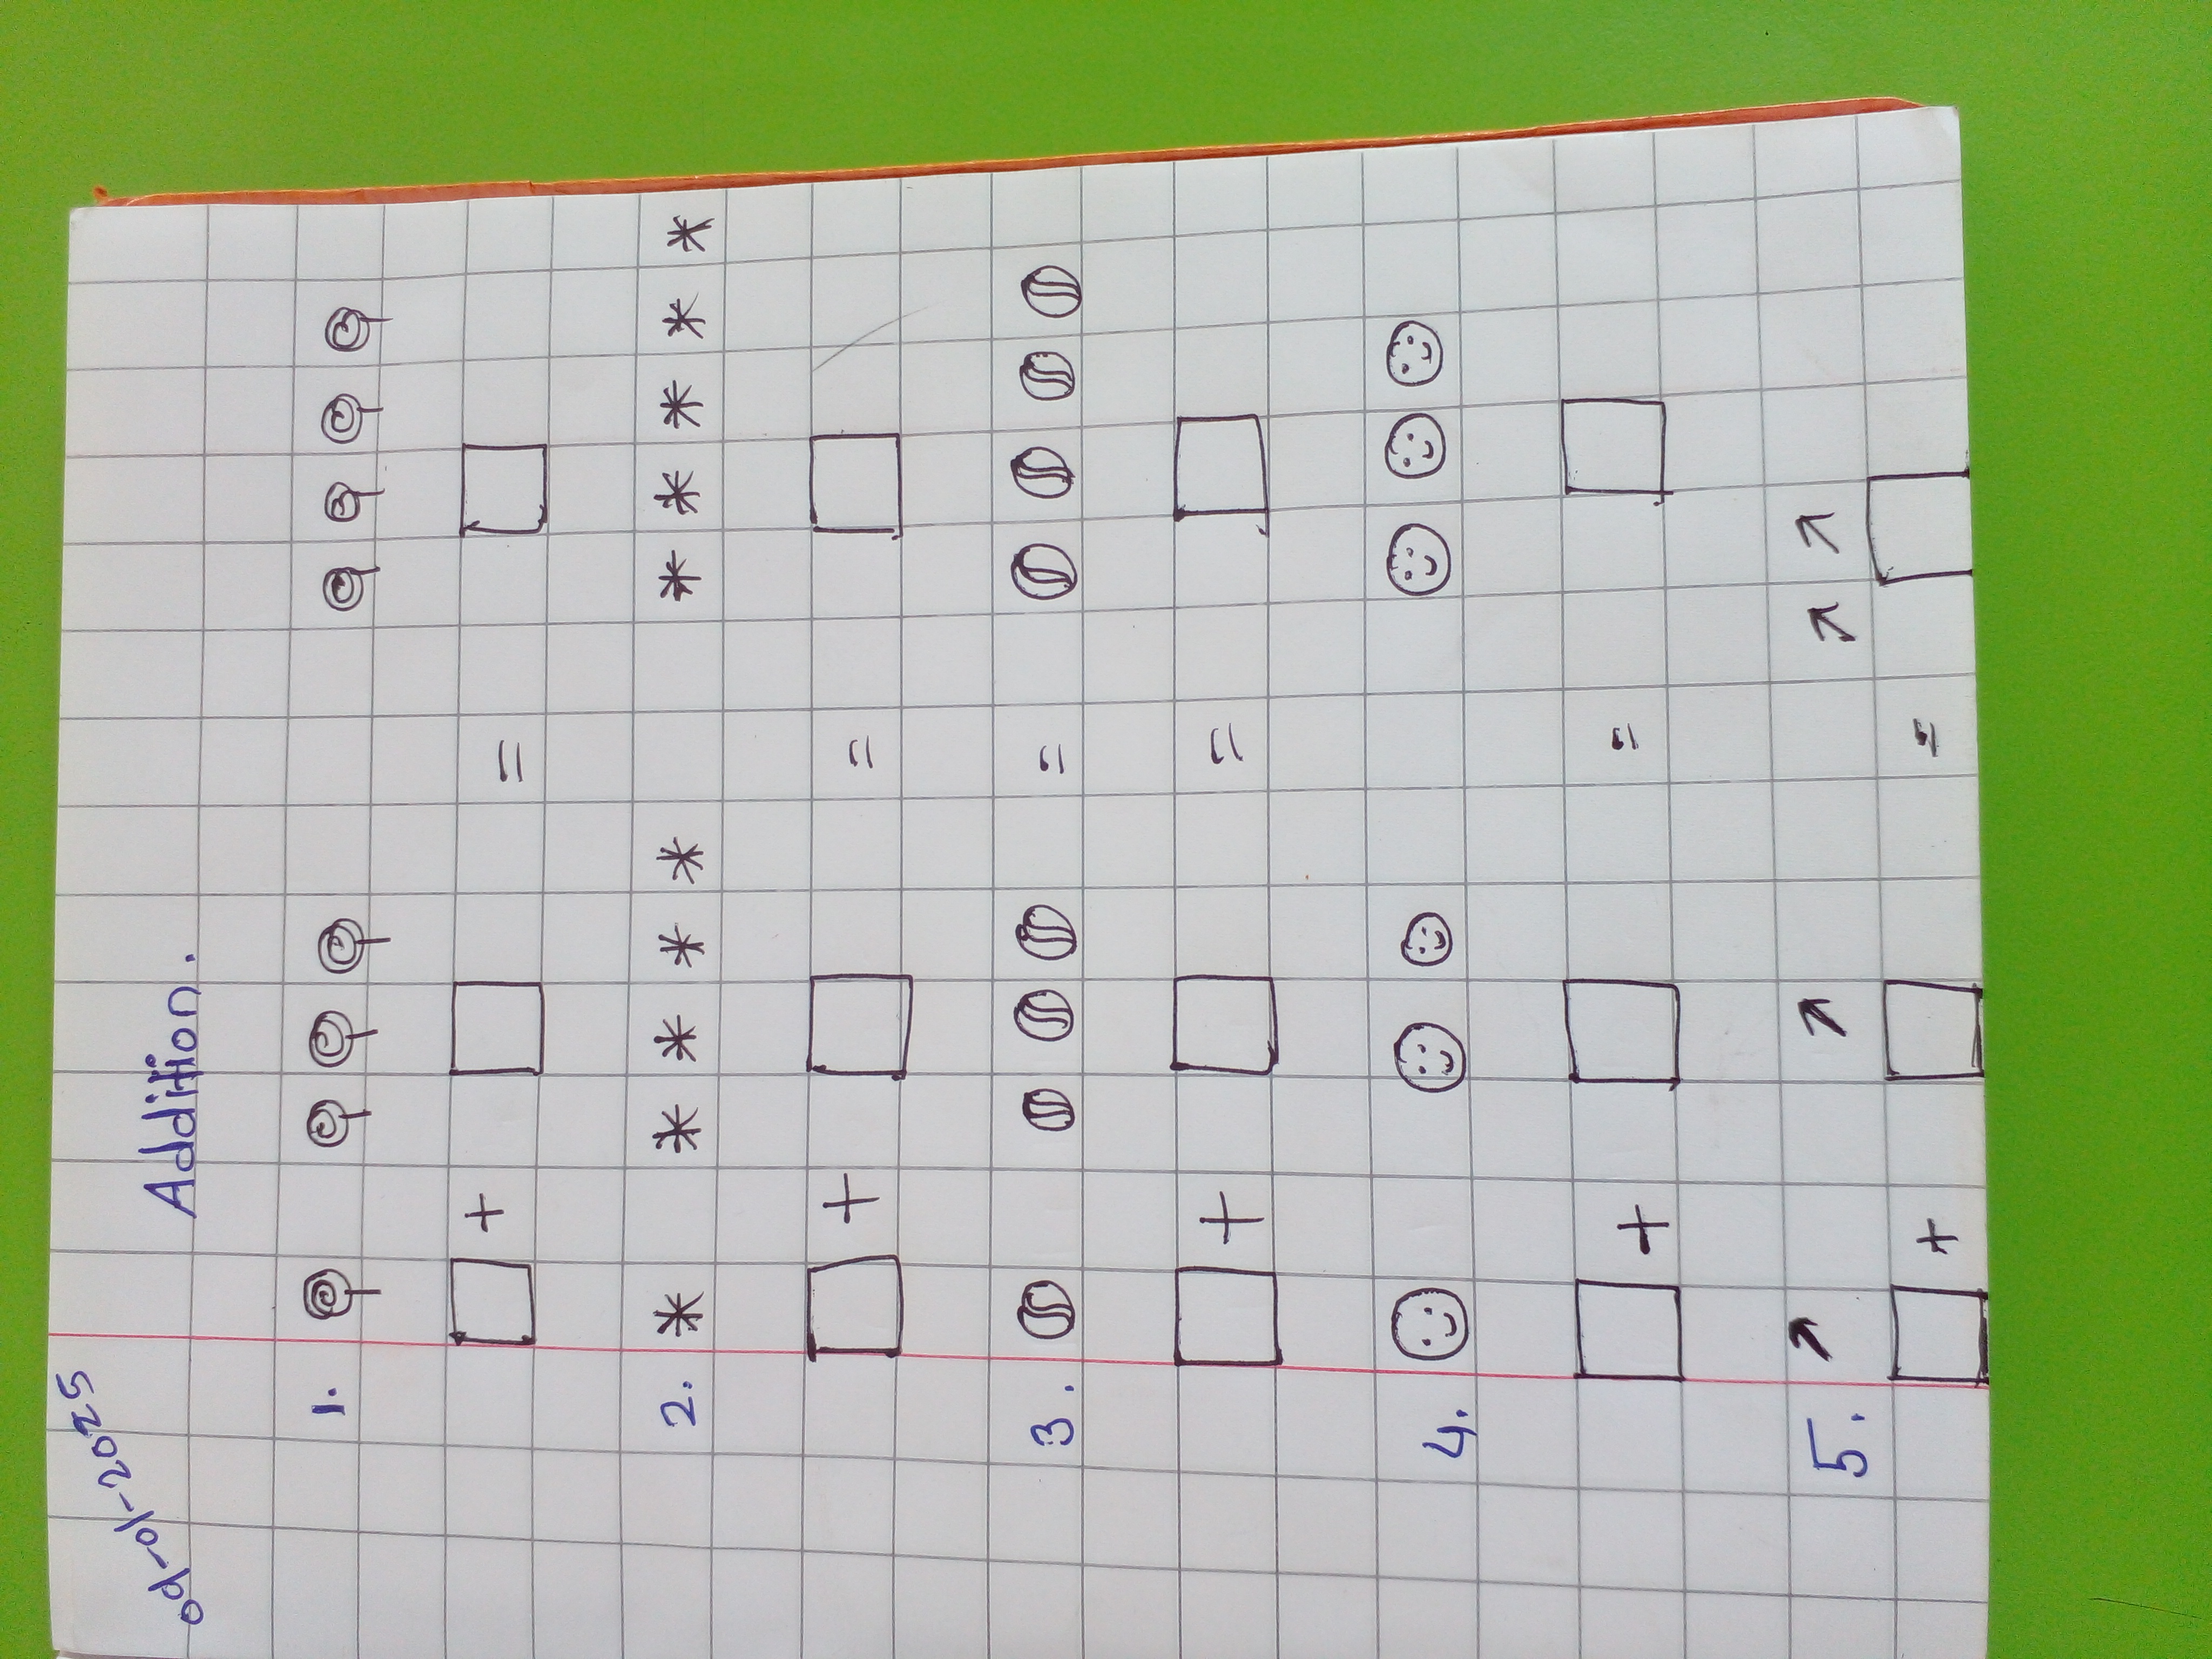 09-01-2025
Addition.
1.
+ =
2.
+ =
3. =
+ =
4.
+ =
5.
+ =